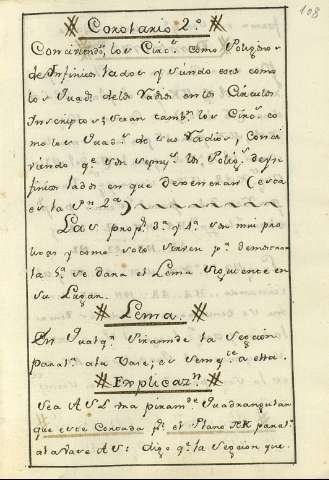 108
Corolario 2º
Concivendoˢ los Circˢ como Poligonos
de Infinitos lados y siendo esos como
los Quadˢ de los Radios en los Circulos
Inscriptos; seran tambⁿ los Circˢ co
mo los Quadˢ de sus Radios, conci
viendo qᵉ son semejˢ los Poligˢ de yn
finitos lados en que degeneran (esta
es la Pⁿ 2ª)
Las propˢ 3ª y 4ª son mui pro
lixas y como solo sirven pª demostrar
la 5ª se dara el Lema siguiente en
su Lugar.
Lema.
En qualqª Piramide la Seccion
paralª a la Vase, es semejᵗᵉ a ella.
Explicazⁿ
Sea ASL una piramᵈᵉ Quadrangular
que este Cortada pʳ el Plano HK paralº
a la Vase AS: digo qᵉ la Seccion que